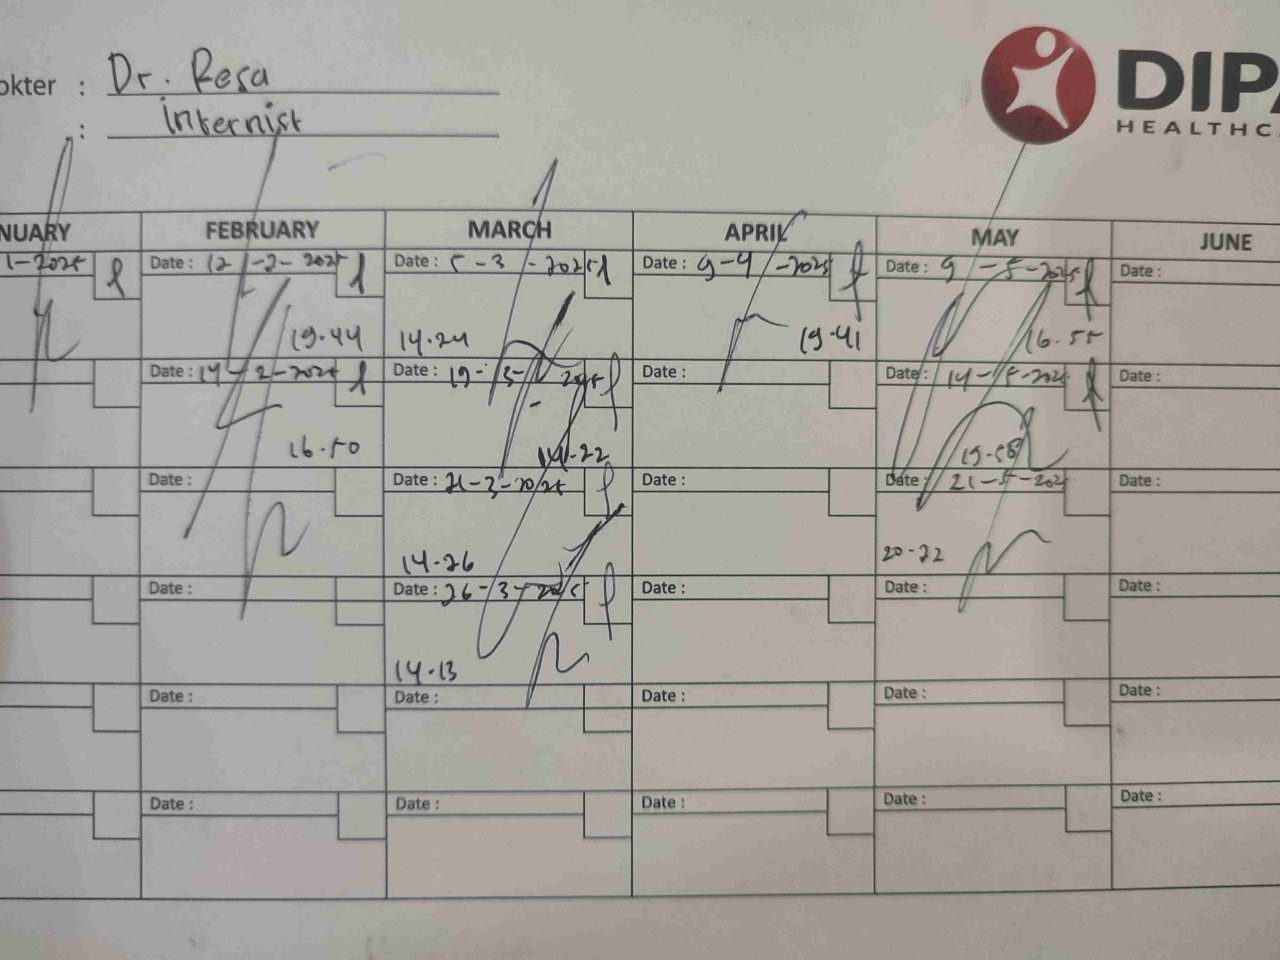 okter : Dr. Resa
: internist
DIPA
HEALTHC
NUARY FEBRUARY MARCH APRIL MAY JUNE
1-2025 Date : 12-2-2025 Date : 5-3-2025 Date : 9-4-2025 Date : 9-5-2025 Date :
19.44 14.24 19.41 16.55
Date : 14-2-2025 Date : 19-3-2025 Date : Date : 14-5-2025 Date :
16.50 14.22 19.58
Date : Date : 21-3-2025 Date : Date : 21-5-202 Date :
14.26 20-22
Date : Date : 26-3-2025 Date : Date : Date :
14.13
Date : Date : Date : Date : Date :
Date : Date : Date : Date : Date :